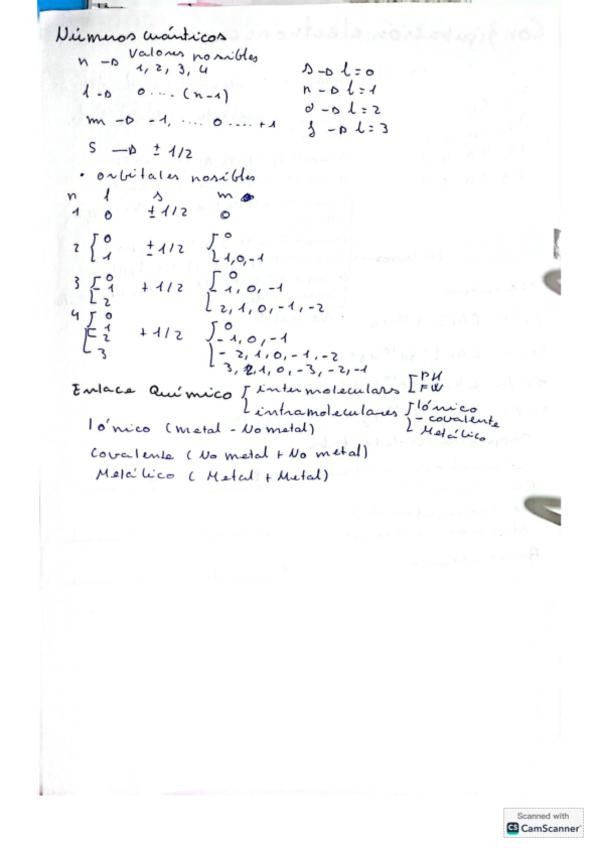 Números cuánticos
Valores posibles
n → 1, 2, 3, 4
s → l=0
l → 0 .... (n-1)
p → l=1
m → -1, .... 0 .... +1
d → l=2
f → l=3
s → ± 1/2
• orbitales posibles
n l s m
1 0 ± 1/2 0
2 { 0 ± 1/2 { 0
1 1, 0, -1
3 { 0 + 1/2 { 0
1 1, 0, -1
2 2, 1, 0, -1, -2
4 { 0 + 1/2 { 0
1 - 1, 0, -1
2 - 2, 1, 0, -1, -2
3 3, 2, 1, 0, -3, -2, -1
Enlace Químico { intermoleculars [ PH
FW
intramoleculares { Iónico
- covalente
Metálico
Iónico (metal - No metal)
Covalente (No metal + No metal)
Metálico (Metal + Metal)
Scanned with
CS CamScanner